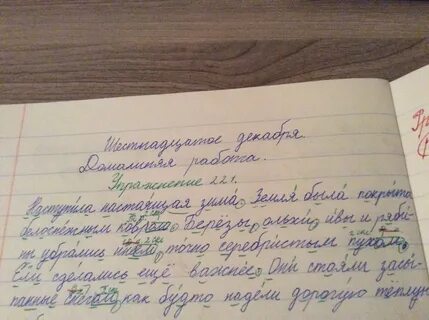 Шестнадцатое декабря.
Домашняя работа.
Упражнение 221.
Наступила настоящая зима. Земля была покрыта
белоснежным ковром. Берёзы, ольхи, ивы и ряби-
ны убрались инеем, точно серебристым пухом.
Ели сделались ещё важнее. Они стояли засы-
панные снегом, как будто надели дорогую тёплую